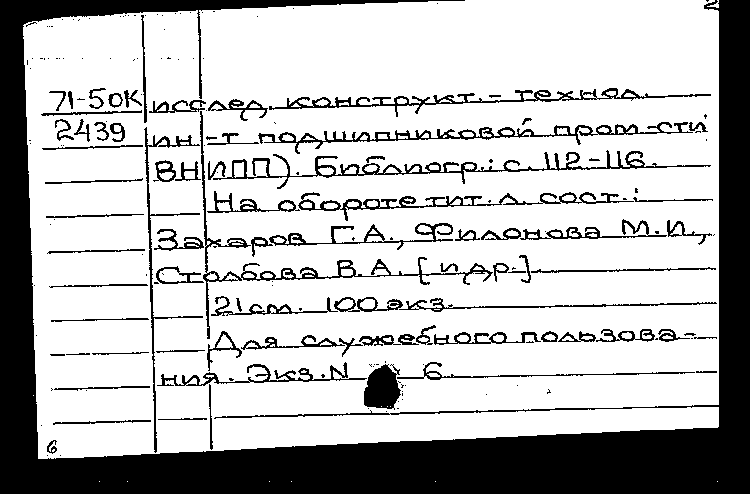 2
71-5ок исслед. конструкт.-технол.
2439 ин-т подшипниковой пром-сти
ВНИПП). Библиогр.: с. 112-116.
На обороте тит. л. сост.:
Захаров Г.А., Филонова М.И.,
Столбова В.А. [и др.].
21 см. 100 экз.
Для служебного пользова-
ния. Экз. N 6.
6